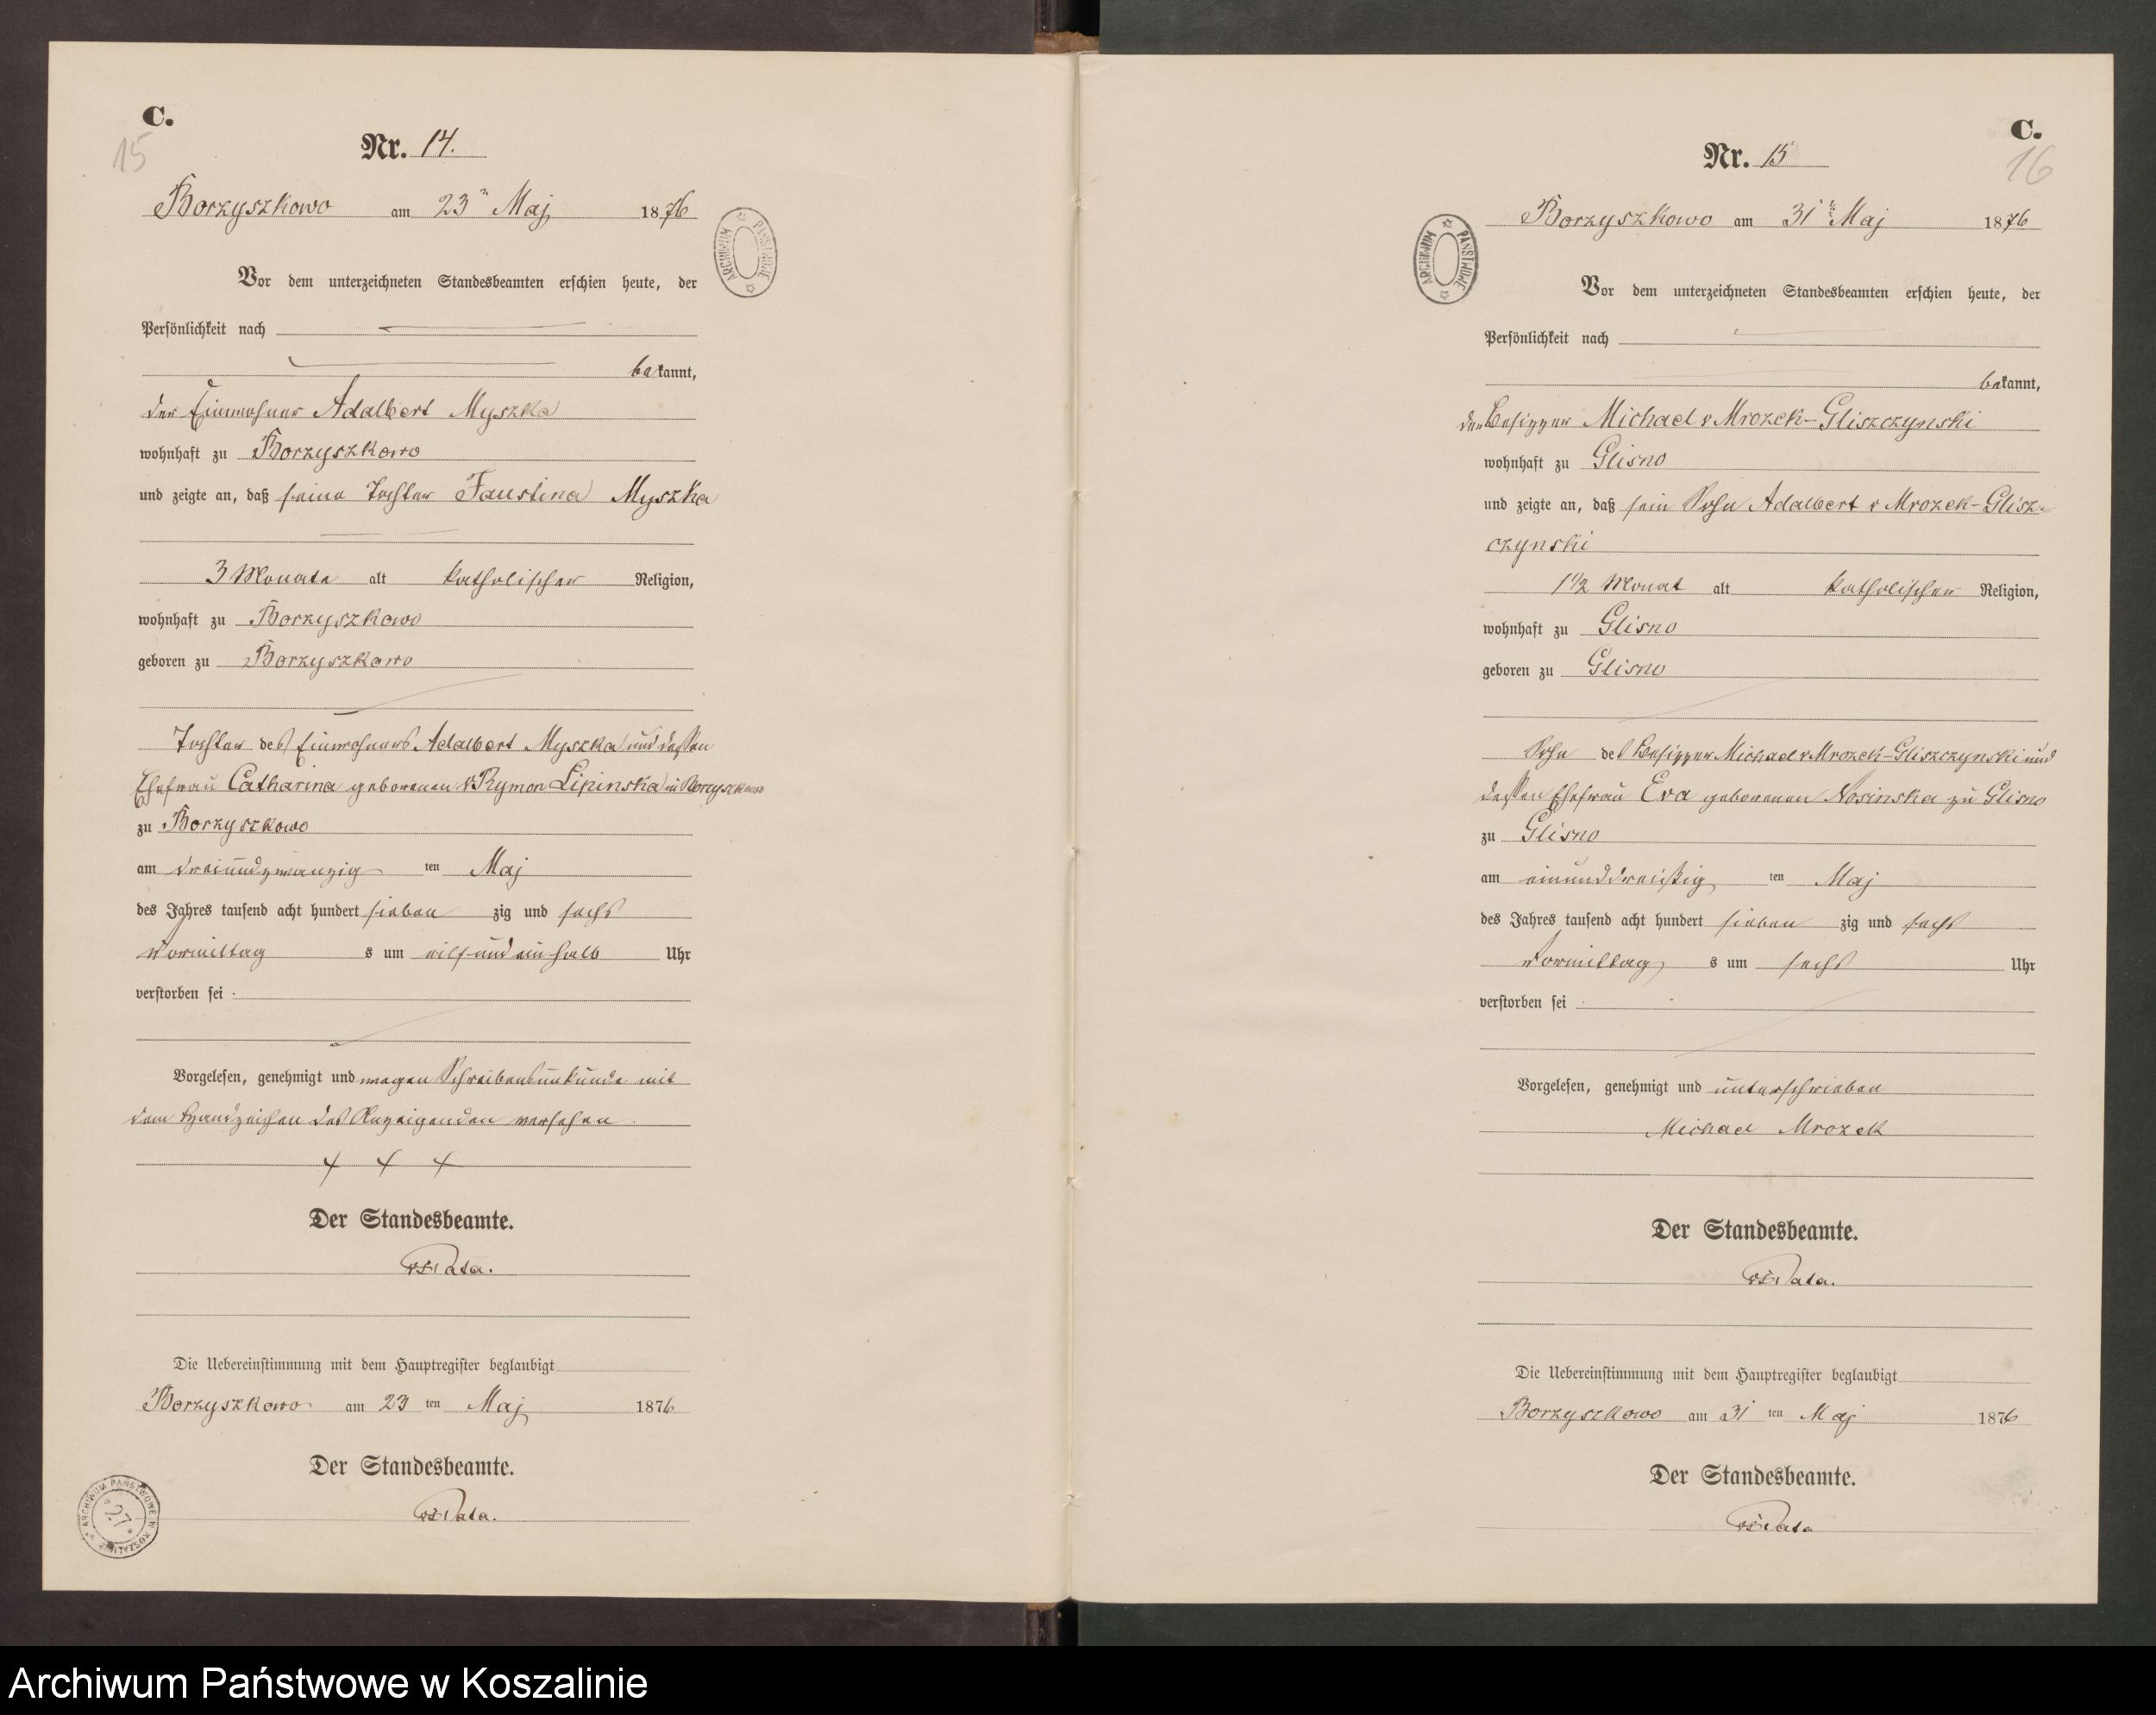 C.
15
Nr. 14.
Borzyszkowo am 23 Maj 1876
ARCHIWUM PAŃSTWOWE
Vor dem unterzeichneten Standesbeamten erschien heute, der
Persönlichkeit nach
bekannt,
der Einwohner Adalbert Myszka
wohnhaft zu Borzyszkowo
und zeigte an, daß seine Tochter Faustina Myszka
3 Monate alt katholischer Religion,
wohnhaft zu Borzyszkowo
geboren zu Borzyszkowo
Tochter des Einwohners Adalbert Myszka und dessen
Ehefrau Catharina geborenen v Rymon Lipinska in Borzyszkowo
zu Borzyszkowo
am dreiundzwanzig ten Maj
des Jahres tausend acht hundert sieben zig und sechs
Vormittag s um eilf und ein halb Uhr
verstorben sei
Vorgelesen, genehmigt und wegen Schreibensunkunde mit
dem Handzeichen des Anzeigenden versehen
+ + +
Der Standesbeamte.
Die Uebereinstimmung mit dem Hauptregister beglaubigt
Borzyszkowo am 23 ten Maj 1876
Der Standesbeamte.
ARCHIWUM PAŃSTWOWE W KOSZALINIE
27
C.
16
Nr. 15
Borzyszkowo am 31 Maj 1876
ARCHIWUM PAŃSTWOWE
Vor dem unterzeichneten Standesbeamten erschien heute, der
Persönlichkeit nach
bekannt,
der Besitzer Michael v Mrozek-Gliszczynski
wohnhaft zu Glisno
und zeigte an, daß sein Sohn Adalbert v Mrozek-Glisz-
czynski
1 1/2 Monat alt katholischer Religion,
wohnhaft zu Glisno
geboren zu Glisno
Sohn des Besitzer Michael v Mrozek-Gliszczynski und
dessen Ehefrau Eva geborenen Nosinska zu Glisno
zu Glisno
am einunddreißig ten Maj
des Jahres tausend acht hundert sieben zig und sechs
Vormittag s um sechs Uhr
verstorben sei
Vorgelesen, genehmigt und unterschrieben
Michael Mrozek
Der Standesbeamte.
Die Uebereinstimmung mit dem Hauptregister beglaubigt
Borzyszkowo am 31 ten Maj 1876
Der Standesbeamte.
Archiwum Państwowe w Koszalinie